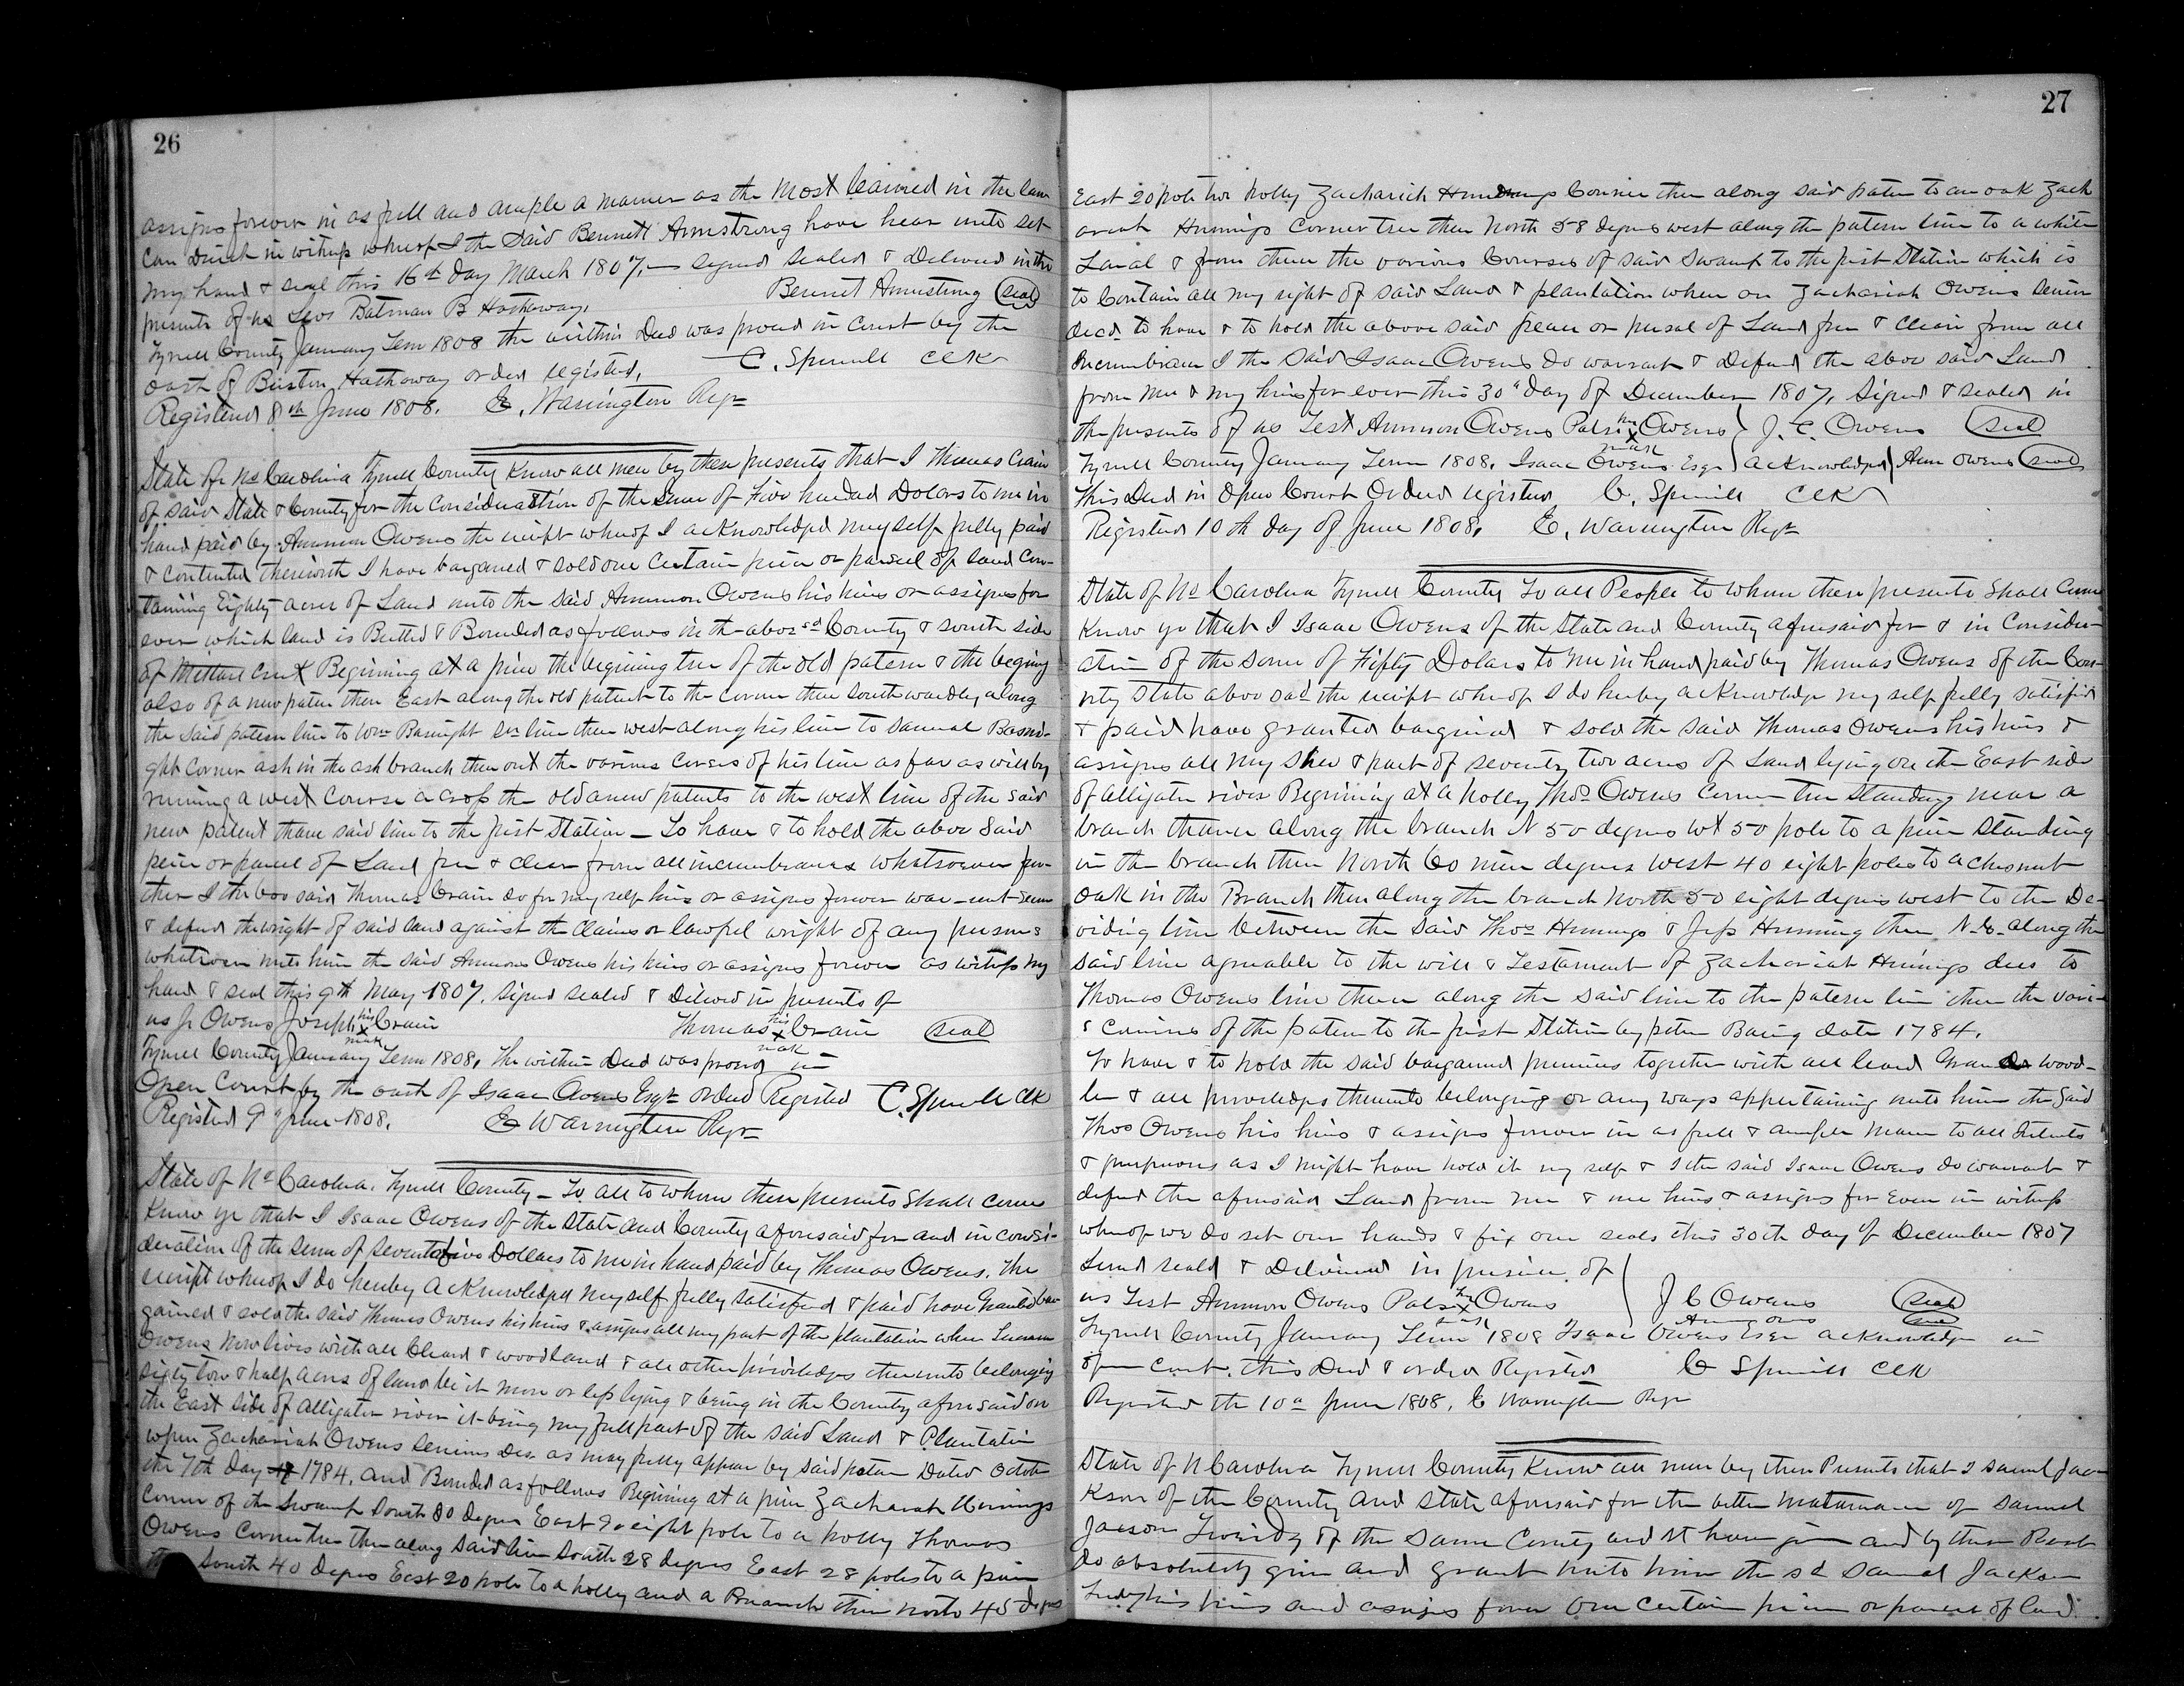 26
assigns forever in as full and ample a manner as the Most learned in the law
Can Divise in witness whereof I the Said Bennett Armstrong have hear unto set
my hand & seal this 16th day March 1807, signed sealed & Delivered in the
presents of us Levi Batman B Hathaway, Bennet Armstrong (seal)
Tyrrell County January Term 1808 the within Deed was proved in Court by the
oath of Burton Hathaway order registed, C. Spruill Clk
Registered 8th June 1808. E. Warrington Regr
State of No Carolina Tyrrell County Know all men by these presents that I Thomas Crain
of said State & County for the Consideration of the Sum of Five hundred Dolars to me in
hand paid by Ammon Owens the receipt whereof I acknowledged myself fully paid
& Contented therewith I have bargained & sold one Certain piece or parsel of land Con-
taining Eighty acres of Land unto the said Ammon Owens his heirs or assigns for
ever which land is Butted & Bounded as follows in the above sd County & south side
of Creek Beginning at a pine the begining tree of the old patern & the begining
also of a new patern then East along the old patent to the Corner then Southwardly along
the said patern line to Wm Basnight Sr line then west along his line to Samuel Basni-
ght Corner ash in the ash branch then out the various Corses of his line as far as will by
runing a west Course across the old & new patents to the west line of the said
new patent thare said line to the first Station — To have & to hold the above Said
peice or parcel of Land free & Clear from all incumbrances whatsoever fur-
ther I the boo said Thomas Crain do for my self heirs or assigns forever warrent
& defend the wright of said land against the Claims or lawfel wright of any persons
whatsoever unto him the said Ammons Owens his heirs or assigns forever as witness my
hand & seal this 9th May 1807. Signed sealed & Delivered in presents of
us Jr Owens Joseph his X mark Crain Thomas his X mark Crain (seal)
Tyrrell County January Term 1808, The within Deed was proved in
Open Court by the oath of Isaac Owens Esqr ordered Registed C. Spruill Clk
Registed 9th June 1808. E Warrington Regr
State of No Carolina. Tyrrell County — To all to whom these presents Shall Come
Know ye that I Isaac Owens of the State and County aforesaid for and in consi-
deration of the sum of Seventyfive Dollars to me in hand paid by Thomas Owens. The
receipt whereof I do hereby acknowledged myself fully satisfied & paid have Granted bar
gained & sold the said Thomas Owens his heirs & assigns all my part of the plantation where
Owens Now lives with all Cleard & woodland & all other priviledges thereunto belonging
sixty tow & half acres of land be it more or less lying & being in the County aforesaid on
the East Side of alligator river it being my full part of the said Land & Plantation
when Zachariah Owens Seniors Des. as may fully appear by said patern Dated October
the 7th day 1784. And Bounded as follows Begining at a pine Zachariah Hinnings
Corner of the Swamp South 80 degrees East eight pole to a holly Thomas
Owens Corner tree then along said line South 28 degrees East 28 poles to a pine
then South 40 degrees East 20 pole to a holly and a Branch then North 45 degres
27
East 20 pole two holly Zachariah Hinnings Corner then along said patern to an oak Zach
ariah Hinnings Corner tree then North 58 degres west along the patern line to a white
Laval & from then the various Courses of said swamp to the first Station which is
to Contain all my right of said Land & plantation when on Zachariah Owens Senior
decd to have & to hold the above said pease or pursal of Land free & Clear from all
Incumbrance I the said Isaac Owens do warrant & Defend the above said Land
from me & my heirs for ever this 30th day of December 1807, Signed & sealed in
the presents of us Test Ammon Owens Patsi her X mark Owens J. C. Owens (seal)
Tyrrell County January Term 1808. Isaac Owens Esqr acknowledged Ann Owens (seal)
This Deed in Open Court Orderd registerd C. Spruill Clk
Registed 10th day of June 1808, E. Warrington Regr
State of No Carolina Tyrrell County To all People to whom these presents Shall Come
Know ye that I Isaac Owens of the State and County aforesaid for & in Consider-
ation of the some of Fifty Dolars to me in hand paid by Thomas Owens of the Cou-
nty State above sad the receipt whereof I do hereby acknowledge my self fully satisfied
& paid have granted barginid & sold the said Thomas Owens his heirs &
assigns all my & part of seventy two acres of Land lying on the East side
of alligator river Beginning at a holly Thos Owens Corner tree standing near a
branch thence along the branch N 50 degrees Wt 50 pole to a pine standing
in the branch then North 60 nine degrees west 40 eight poles to a chesnut
oak in the Branch then along the branch North 50 eight degrees west to the De-
viding line between the said Thos Hinnings & Jess Hinning then N.E. along the
said line agreable to the will & Testament of Zachariah Hinnings des to
Thomas Owens line thence along the said line to the patern line then the vari-
s Corners of the patern to the first Station by patern Baring date 1784.
To have & to hold the said bargained premises together with all leard wood-
len & all priviledges thereunto belonging or any ways appertaining unto him the Said
Thos Owens his heirs & assigns forever in as full & ample Manner to all Intents
& purposes as I might have hold it my self & I the said Isaac Owens do warrant &
defend the aforesaid Land from me & me heirs & assigns for Ever in witness
whereof we do set our hands & fix our seals this 30th day of December 1807
Sined seald & Delivered in presence of
us Test Ammon Owens Patsi her X mark Owens J C Owens (seal)
Ann Owens (seal)
Tyrrell County January Term 1808 Isaac Owens Esqr acknowledge in
open court this Deed & orderd Registed C Spruill Clk
Registed the 10th June 1808. E Warrington Regr
State of N Carolina Tyrrell County Know all men by these Presents that I Samuel Jac
kson of the County and State aforesaid for the better Maturnance of Samuel
Jacson of the Same County and St have given and by these Presents
do absolutely give and grant unto him the sd Samuel Jackson
his heirs and assigns forever One Certain piece or parcel of land